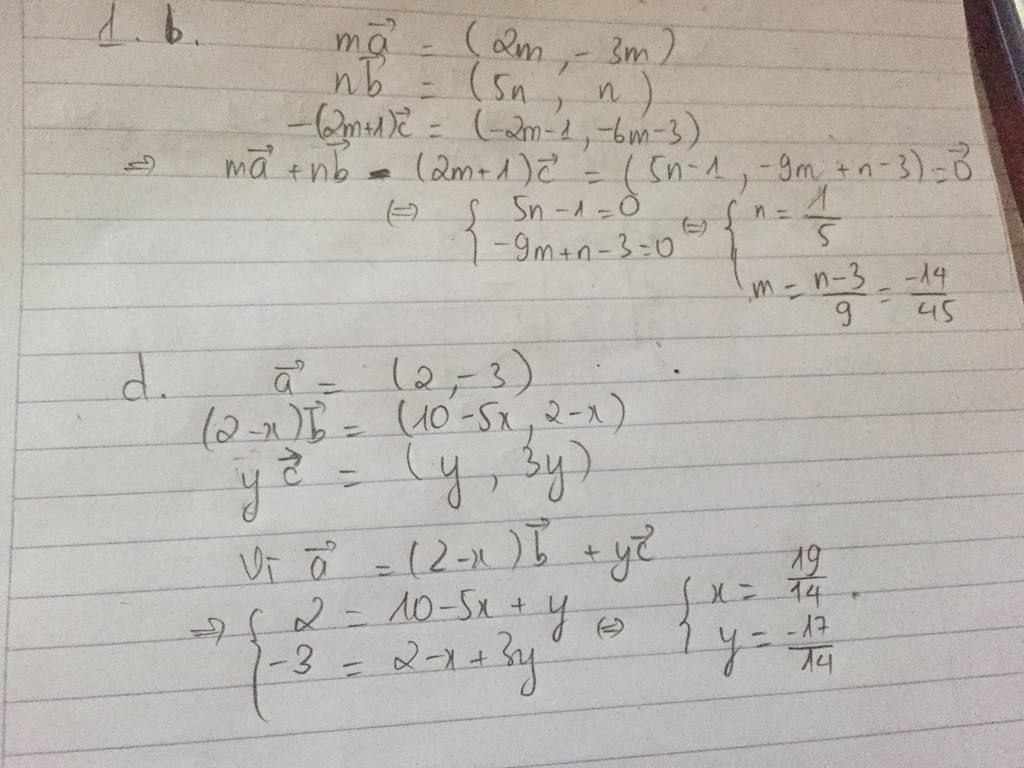 1. b. m\vec{a} = (2m, -3m)
n\vec{b} = (5n, n)
-(2m+1)\vec{c} = (-2m-1, -6m-3)
⇒ m\vec{a} + n\vec{b} - (2m+1)\vec{c} = (5n-1, -9m+n-3) = \vec{0}
⇔ { 5n-1=0 ⇔ { n = 1/5
-9m+n-3=0
m = (n-3)/9 = -14/45
d. \vec{a} = (2, -3)
(2-x)\vec{b} = (10-5x, 2-x)
y\vec{c} = (y, 3y)
Vì \vec{a} = (2-x)\vec{b} + y\vec{c}
⇒ { 2 = 10-5x+y ⇔ { x = 19/14.
-3 = 2-x+3y
y = -17/14